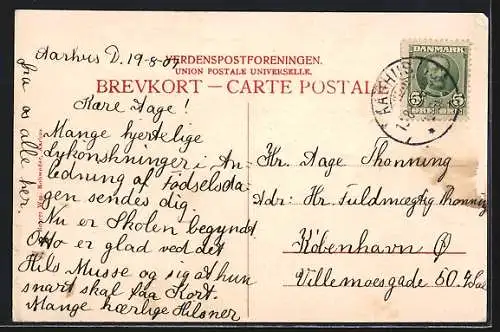 Aarhus D. 19-8-07
VERDENSPOSTFORENINGEN.
UNION POSTALE UNIVERSELLE.
BREVKORT — CARTE POSTALE
DANMARK
5 5
AARHUS
Kære Aage!
Mange hjertelige
Lykønskninger i An-
ledning af Fødselsda-
gen sendes dig.
Nu er Skolen begyndt
Otto er glad ved det
Hils Musse og sig at hun
snart skal faa Kort.
Mange kærlige Hilsner
fra os alle her.
Hr. Aage Thonning
Adr: Hr. Fuldmægtig Thonning
København Ø
Villemoesgade 50.